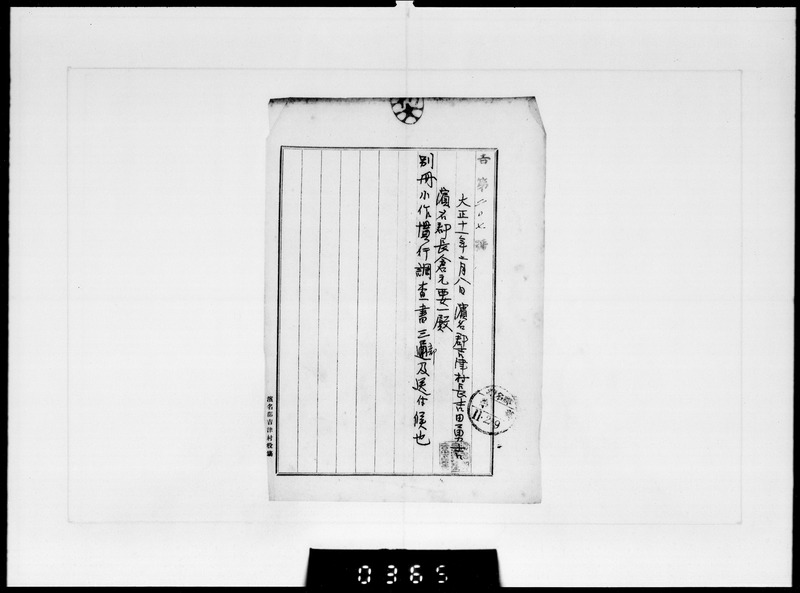 吉第二〇七号
大正十一年二月八日 濱名郡吉津村長吉田勇吉
濱名郡長倉元要一殿
別冊小作慣行調査書三通及送付候也
濱名郡吉津村役場
11.2.9
0365